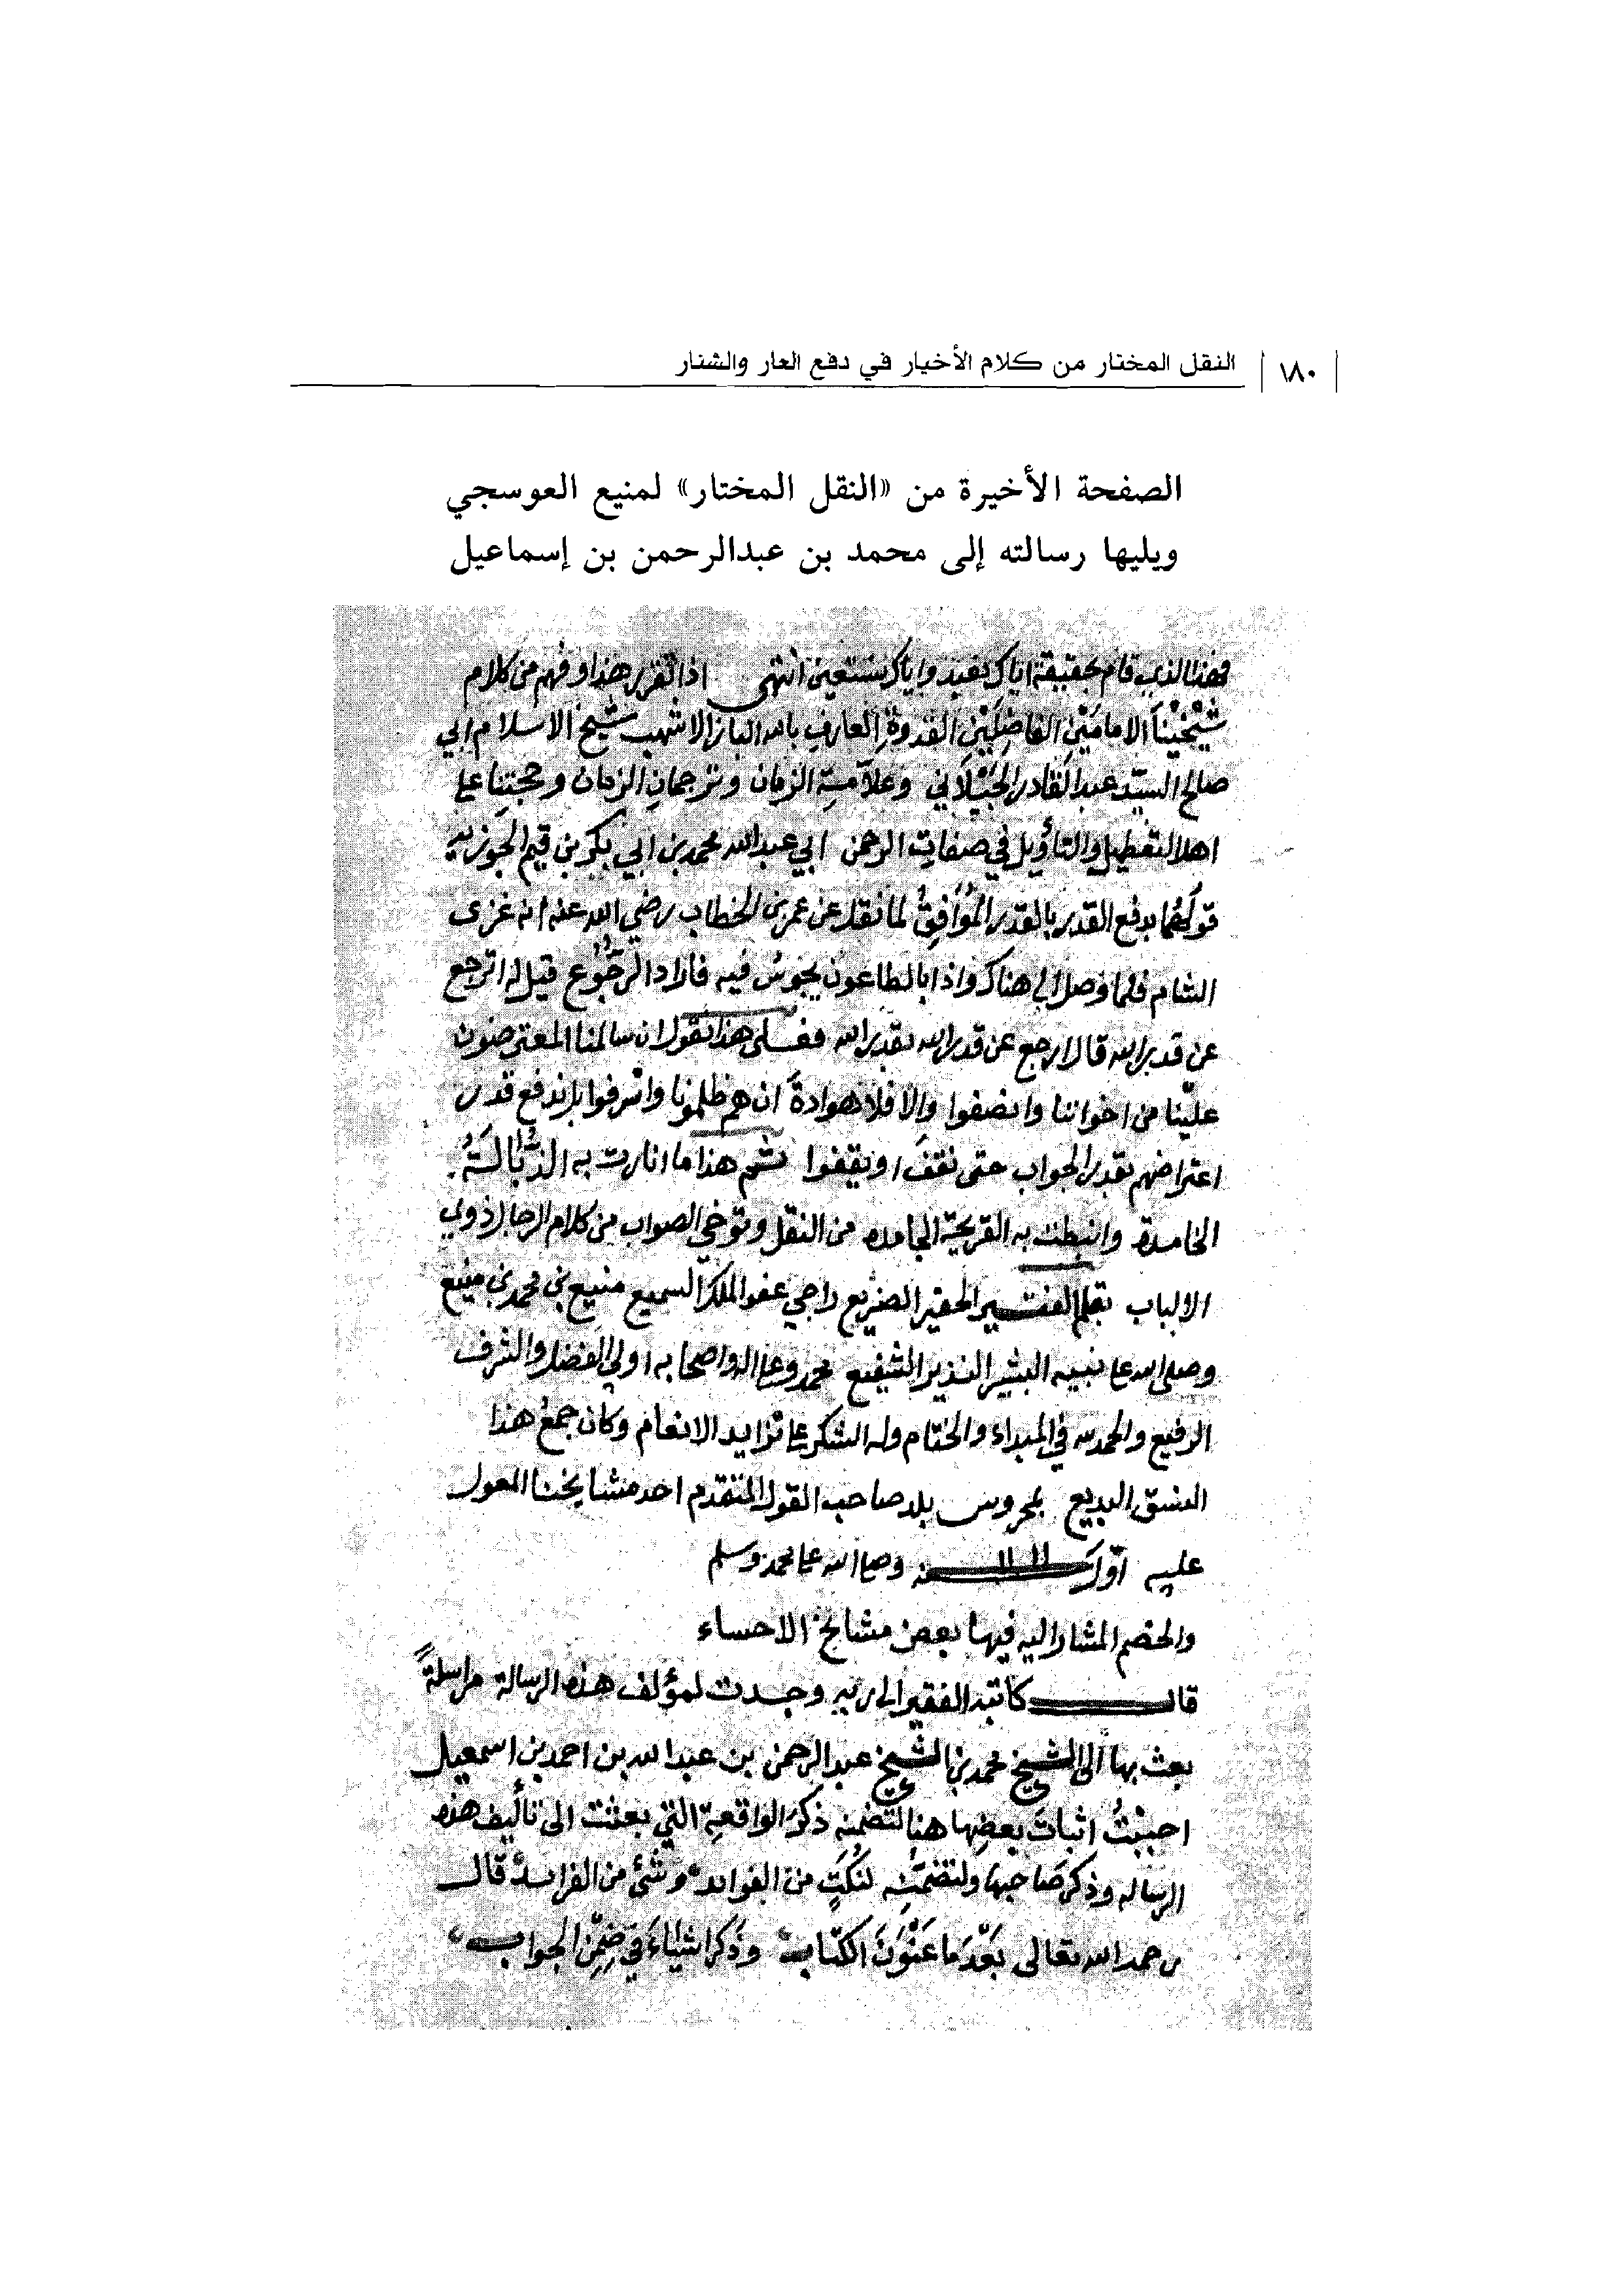 ١٨٠ | النقل المختار من كلام الأخيار في دفع العار والشنار
الصفحة الأخيرة من «النقل المختار» لمنيع العوسجي
ويليها رسالته إلى محمد بن عبدالرحمن بن إسماعيل
فهذا الذي قام بحقيقة اياك نعبد واياك نستعين انتهى اذا تقرر هذا وفهم من كلام
شَيْخَيْنَا الامامَيْنِ الفاضِلَيْنِ القدوةِ العارفِ بالله الباز الاشهب شيخ الاسلام ابي
صالح السيّد عبد القادر الجَيْلَاني وعلّامةِ الزمان وترجمانِ الزمان وحجتنا على
اهل التعطيل والتأويل في صفات الرحمن ابي عبد الله محمد بن ابي بكر بن قيم الجوزيه
قولهُما بدفع القدر بالقدر المُوَافِقُ لما نقل عن عمر بن الخطاب رضي الله عنه انه غزى
الشام فلما وصل الى هناك واذا بالطاعون يجوس فيه فاراد الرجُوع قيل له اترجع
عن قدر الله قال ارجع عن قدر الله بقدر الله فعلى هذا نقول ان سالمنا المعترضون
علينا من اخواننا وانصفوا والا فلا هوادةَ ان هم ظلمونا واسرفوا بل ندفع قدر
اعتراضهم بقدر الجواب حتى نقفَ او يقفوا ثم هذا ما انارت به الذُّبَالَةُ
الخامدة وانبطت به القريحة الجامده من النقل وتوخي الصواب من كلام الرجال ذوي
الالباب بقلم الفقير الحقير الضريع راجي عفو الملك السميع منيع بن محمد بن منيع
وصلى الله على نبيه البشير النذير الشفيع محمد وعلى اله واصحابه اولي الفضل والشرف
الرفيع والحمد لله في المبداء والختام وله الشكر على تزايد الانعام وكان جمعُ هذا
النسق البديع بمحروس بلد صاحب القول المتقدم احد مشايخنا المعول
عليه اوّلَ وصلى الله على محمد وسلم
والخصم المشار اليه فيها بعض مشايخ الاحساء
قال كاتبه الفقير الى ربه وجدت لمؤلف هذه الرسالة مراسلةً
بعث بها الى الشيخ محمد بن الشيخ عبد الرحمن بن عبد الله بن احمد بن اسمعيل
احببْتُ اثباتَ بعضِها هنا لتضمنه ذكرَ الواقعةِ التي بعثت الى تأليف هذه
الرساله وذكر صاحبها ولتضمنه لنُكَتٍ من الفوائد وشئ من الفرائد قال
رحمه الله تعالى بَعْدَ ما عَنْوَنَ الكتاب وذكر اشياءَ في ضِمْنِ الجواب